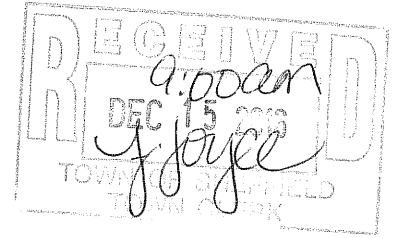 RECEIVED
9:00am
DEC 15 2016
J. Joyce
TOWN OF SHEFFIELD
TOWN CLERK